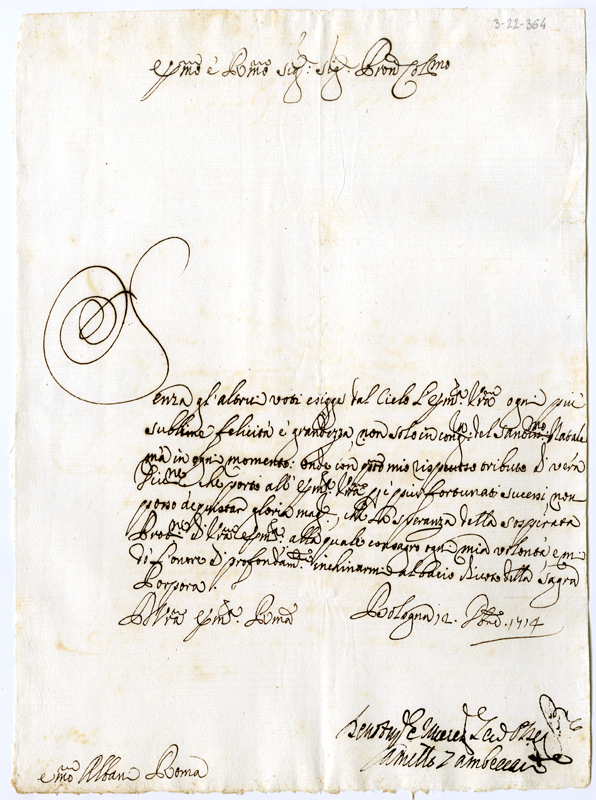 3-22-364
Em̃o è Rm̃o Sig: Sig: Pron̄ Col̃mo
Senza gl'altrui voti esigge dal Cielo l'Em̃a Vr̃a ogni più
sublime felicità è grandezza, non solo in cong.ra del Santis.mo Natale
mà in ogni momento: onde con q̃to mio rispettoso tributo di vera
che porto all'Em̃a Vr̃a p̱ i più fortunati sucessi, non
posso acquistar gloria mag.re, che la speranza della sospirata
Prot.ne di Vr̃a Em̃a alla quale consagro ogni mia volontà, e m
dò l'onore di profondam.te inchinarmi al bacio della Sagra
Porpora.
D Vr̃a Em̃a Rm̃a
Bologna 12. Xbre. 1714
Camillo Zambeccari
Em̃o Albani Roma